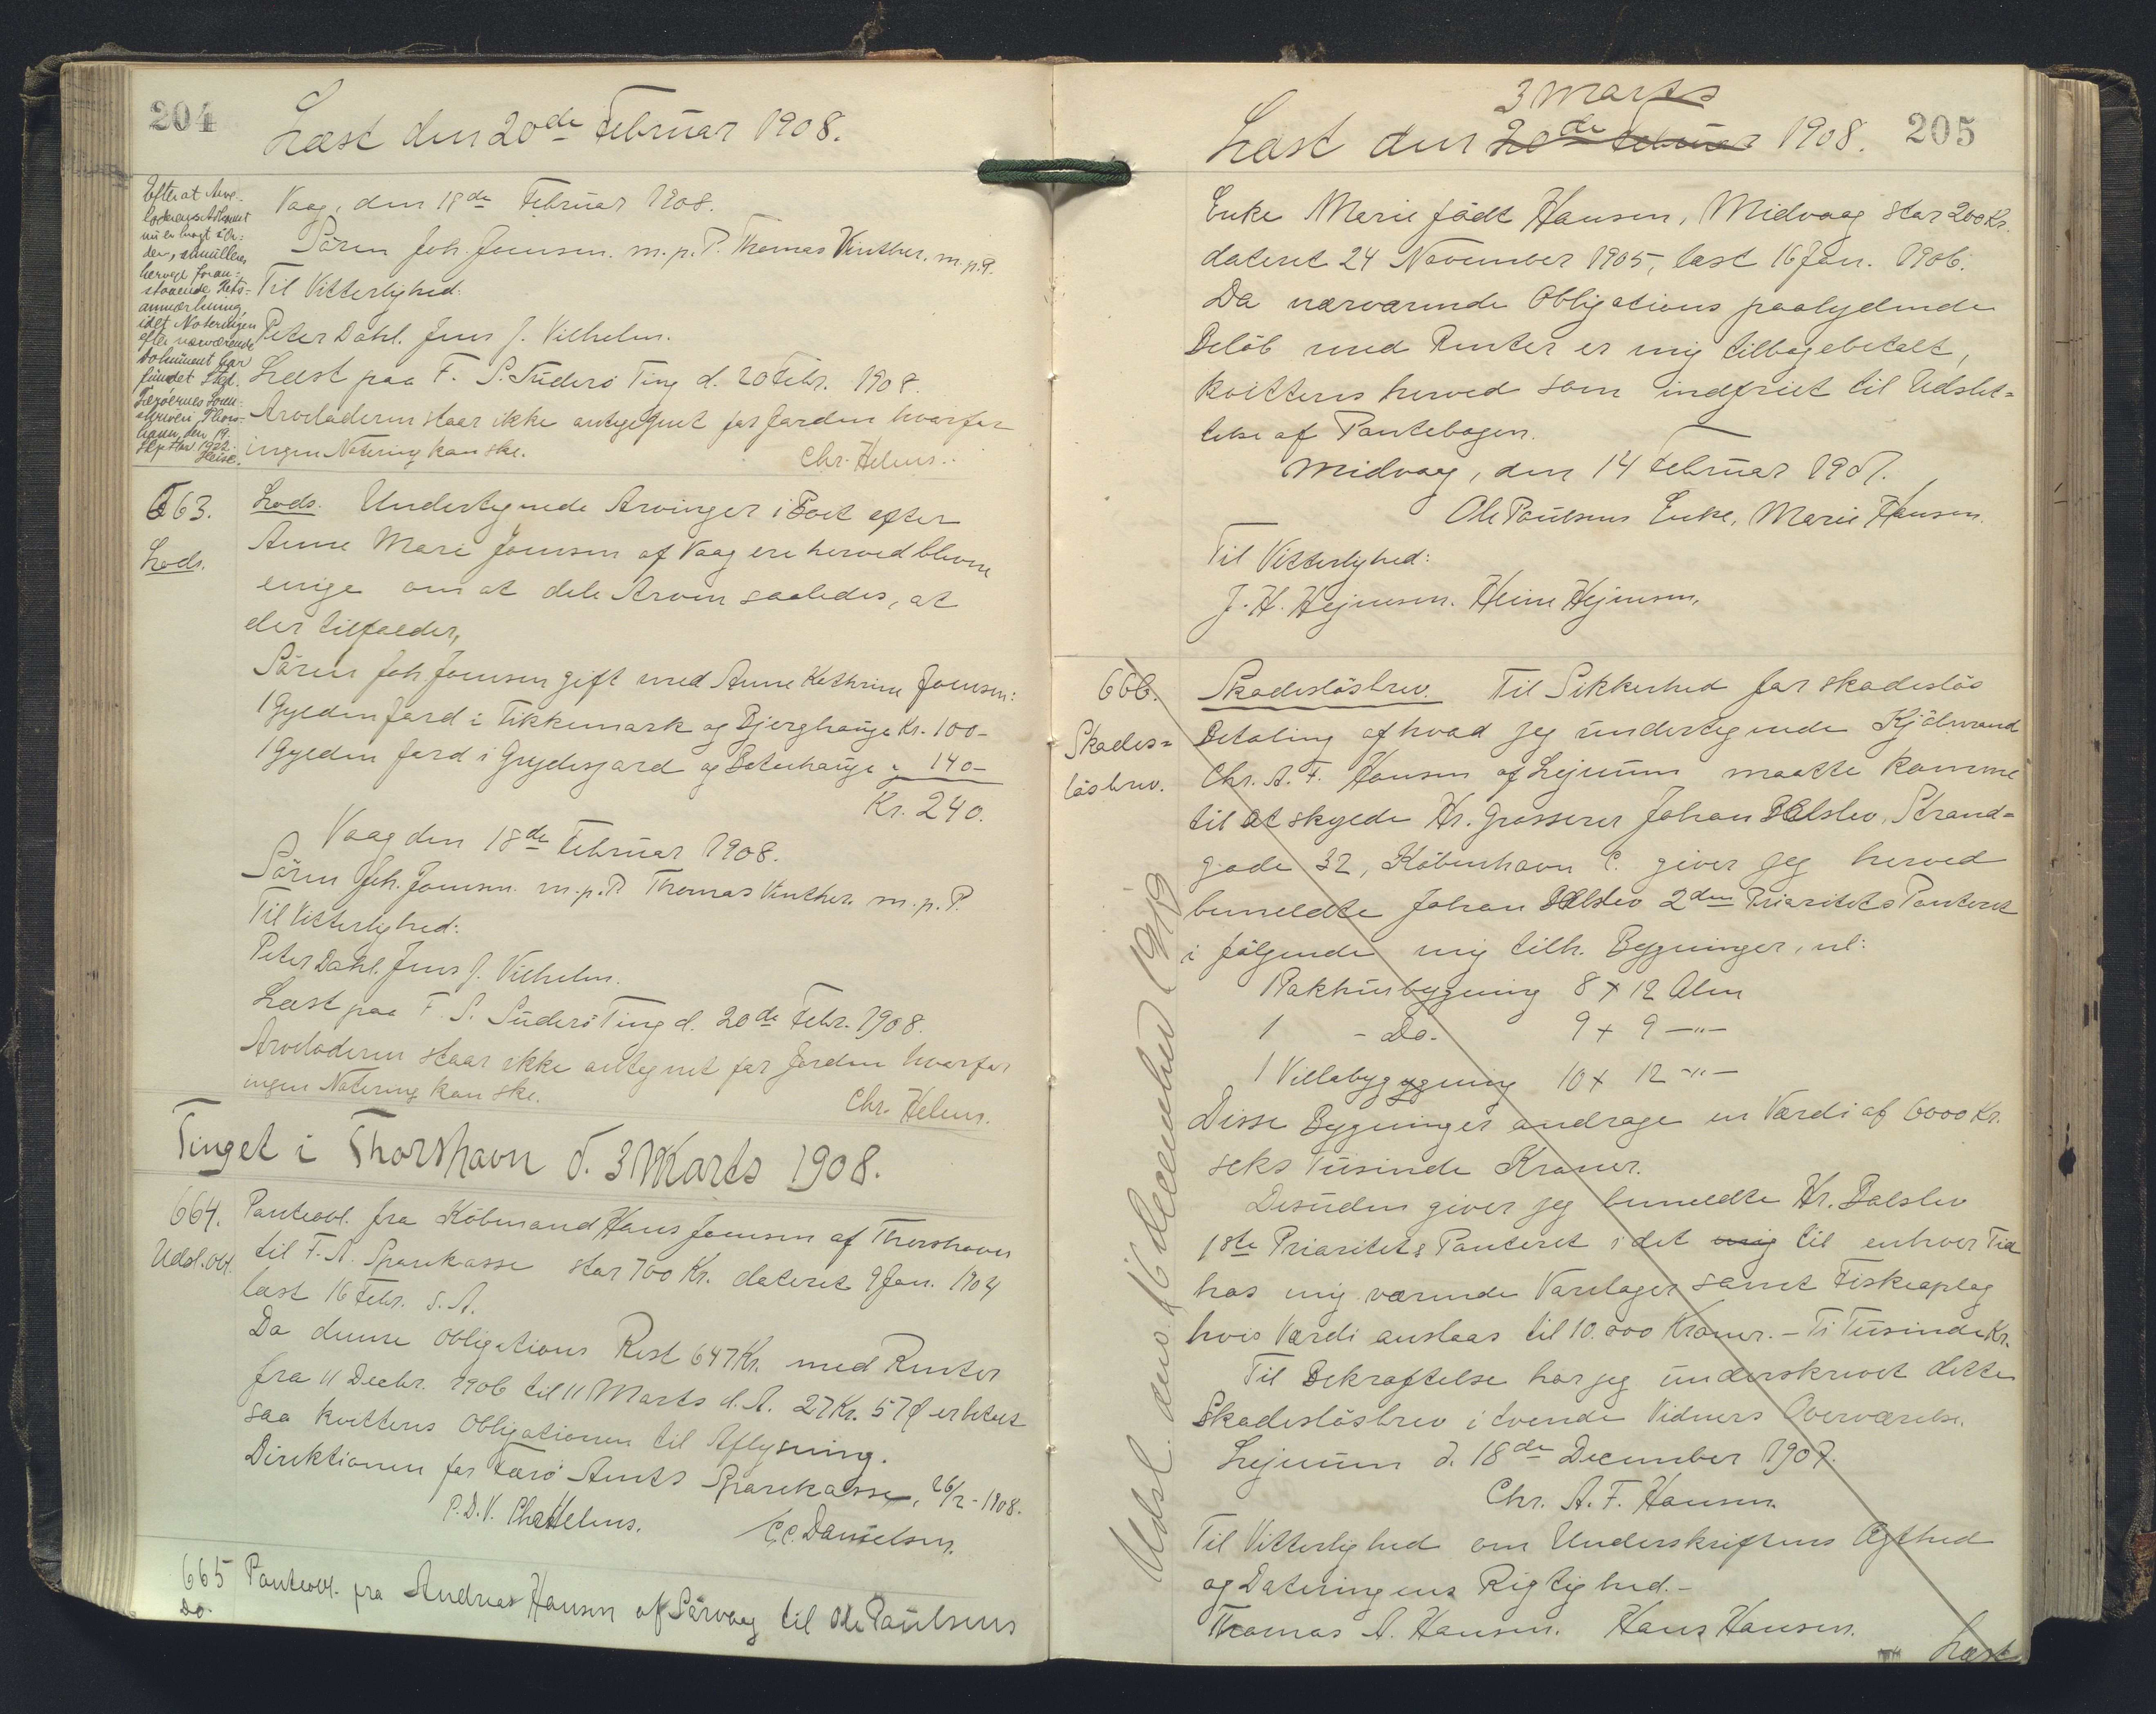 204
Læst den 20de Februar 1908.
Efter at Arve-
ladersAdkomst
nu er bragt i Or-
den, annulleres
herved foran-
staaende Rets-
anmærkning,
idet Noteringen
efter nærværende
Dokument har
fundet Sted.
Færøernes Soren-
skriveri, Thors-
havn, den 19.
Septbr. 1922.
Heise.
Vaag, den 18de Februar 1908.
Sören Joh. Joensen. m.p.P. Thomas Vinther. m.p.P.
Til Vitterlighed.
Peter Dahl. Jens J. Vilhelm.
Læst paa F. S. Suderö Ting d. 20 Febr. 1908.
Arveladeren staar ikke antegnet for Jorden hvorfor
ingen Notering kan ske.
Chr. Helms.
663.
Lods.
Lods. Undertegnede Arvinger i Boet efter
Anne Mari Joensen af Vaag ere herved blevne
enige om at dele Arven saaledes, at
der tilfalder,
Sören Joh. Joensen gift med Anne Kathrine Joensen:
1 Gylden Jord i Tikkemark og Bjerghauge Kr. 100-
1 Gylden Jord i Grydesgard og Botushauge " 140-
Kr. 240.
Vaag den 18de Februar 1908.
Sören Joh. Joensen. m.p.P. Thomas Vinther. m.p.P.
Til Vitterlighed:
Peter Dahl. Jens J. Vilhelm.
Læst paa F. S. Suderö Ting d. 20de Febr. 1908.
Arveladeren staar ikke antegnet for Jorden hvorfor
ingen Notering kan ske.
Chr. Helms.
Tinget i Thorshavn d. 3 Marts 1908.
664.
Udsl. Obl.
Panteobl. fra Köbmand Hans Joensen af Thorshavn
til F. A. Sparekasse stor 700 Kr. dateret 9 Jan. 1904
læst 16 Febr. s. A.
Da denne Obligations Rest 647 Kr. med Renter
fra 11 Decbr. 1906 til 11 Marts d. A. 27 Kr. 57 Ø er betalt
saa kvitteres Obligationen til Aflysning.
Direktionen for Færö Amts Sparekasse, 26/2 - 1908.
P.D.V. Chr Helms. C.C. Danielsen.
665
Do.
Panteobl. fra Andreas Hansen af Sörvaag til Ole Poulsens
205
3 Marts
Læst den 20de Februar 1908.
Enke Marie födt Hansen, Midvaag stor 200 Kr.
dateret 24 November 1905, læst 16 Jan. 1906.
Da nærværende Obligations paalydende
Belöb med Renter er mig tilbagebetalt,
kvitteres herved som indfriet til Udslet-
telse af Pantebogen.
Midvaag, den 14 Februar 1907.
Ole Poulsens Enke, Marie Hansen.
Til Vitterlighed:
J. H. Hejnesen. Heine Hejnesen.
666.
Skades-
lösbrev.
Skadeslösbrev. Til Sikkerhed for skadeslös
Betaling af hvad jeg undertegnede Kjöbmand
Chr. A. F. Hansen af Lejnum maatte komme
til at skylde Hr. Grosserer Johan Balslev, Strand-
gade 32, Köbenhavn C. giver jeg herved
bemeldte Johan Balslev 2den Prioritets Panteret
i fölgende mig tilh. Bygninger, nl:
1 Pakhusbygning 8 x 12 Alen
1 - Do. 9 x 9 -"-
1 Villabygygning 10 x 12 -"-
Disse Bygninger andrage en Værdi af 6000 Kr.
seks Tusinde Kroner.
Desuden giver jeg bemeldte Hr. Balslev
1ste Prioritets Panteret i det mig til enhver Tid
hos mig værende Varelager samt Fiskeoplag
hvis Værdi anslaas til 10.000 Kroner. - Ti Tusinde Kr.
Til Bekræftelse har jeg underskrevet dette
Skadeslösbrev i tvende Vidners Overværelse.
Lejnum d. 18de December 1907.
Chr. A. F. Hansen.
Til Vitterlighed om Underskriftens Ægthed
og Dateringens Rigtighed.-
Thomas A. Hansen. Hans Hansen.
Læst
Udsl. 16 december 1913